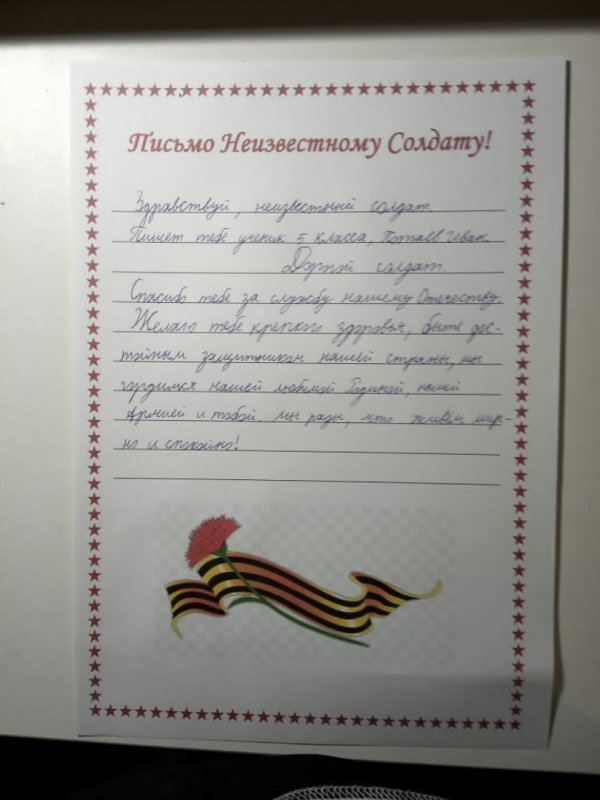 Письмо Неизвестному Солдату!
Здравствуй, неизвестный солдат.
Пишет тебе ученик 5 класса, Иван.
Дорогой солдат.
Спасибо тебе за службу нашему Отечеству.
Желаю тебе крепкого здоровья, быть дос-
тойным защитником нашей страны, мы
гордимся нашей любимой Родиной, нашей
Армией и тобой. мы рады, что живём мир-
но и спокойно!